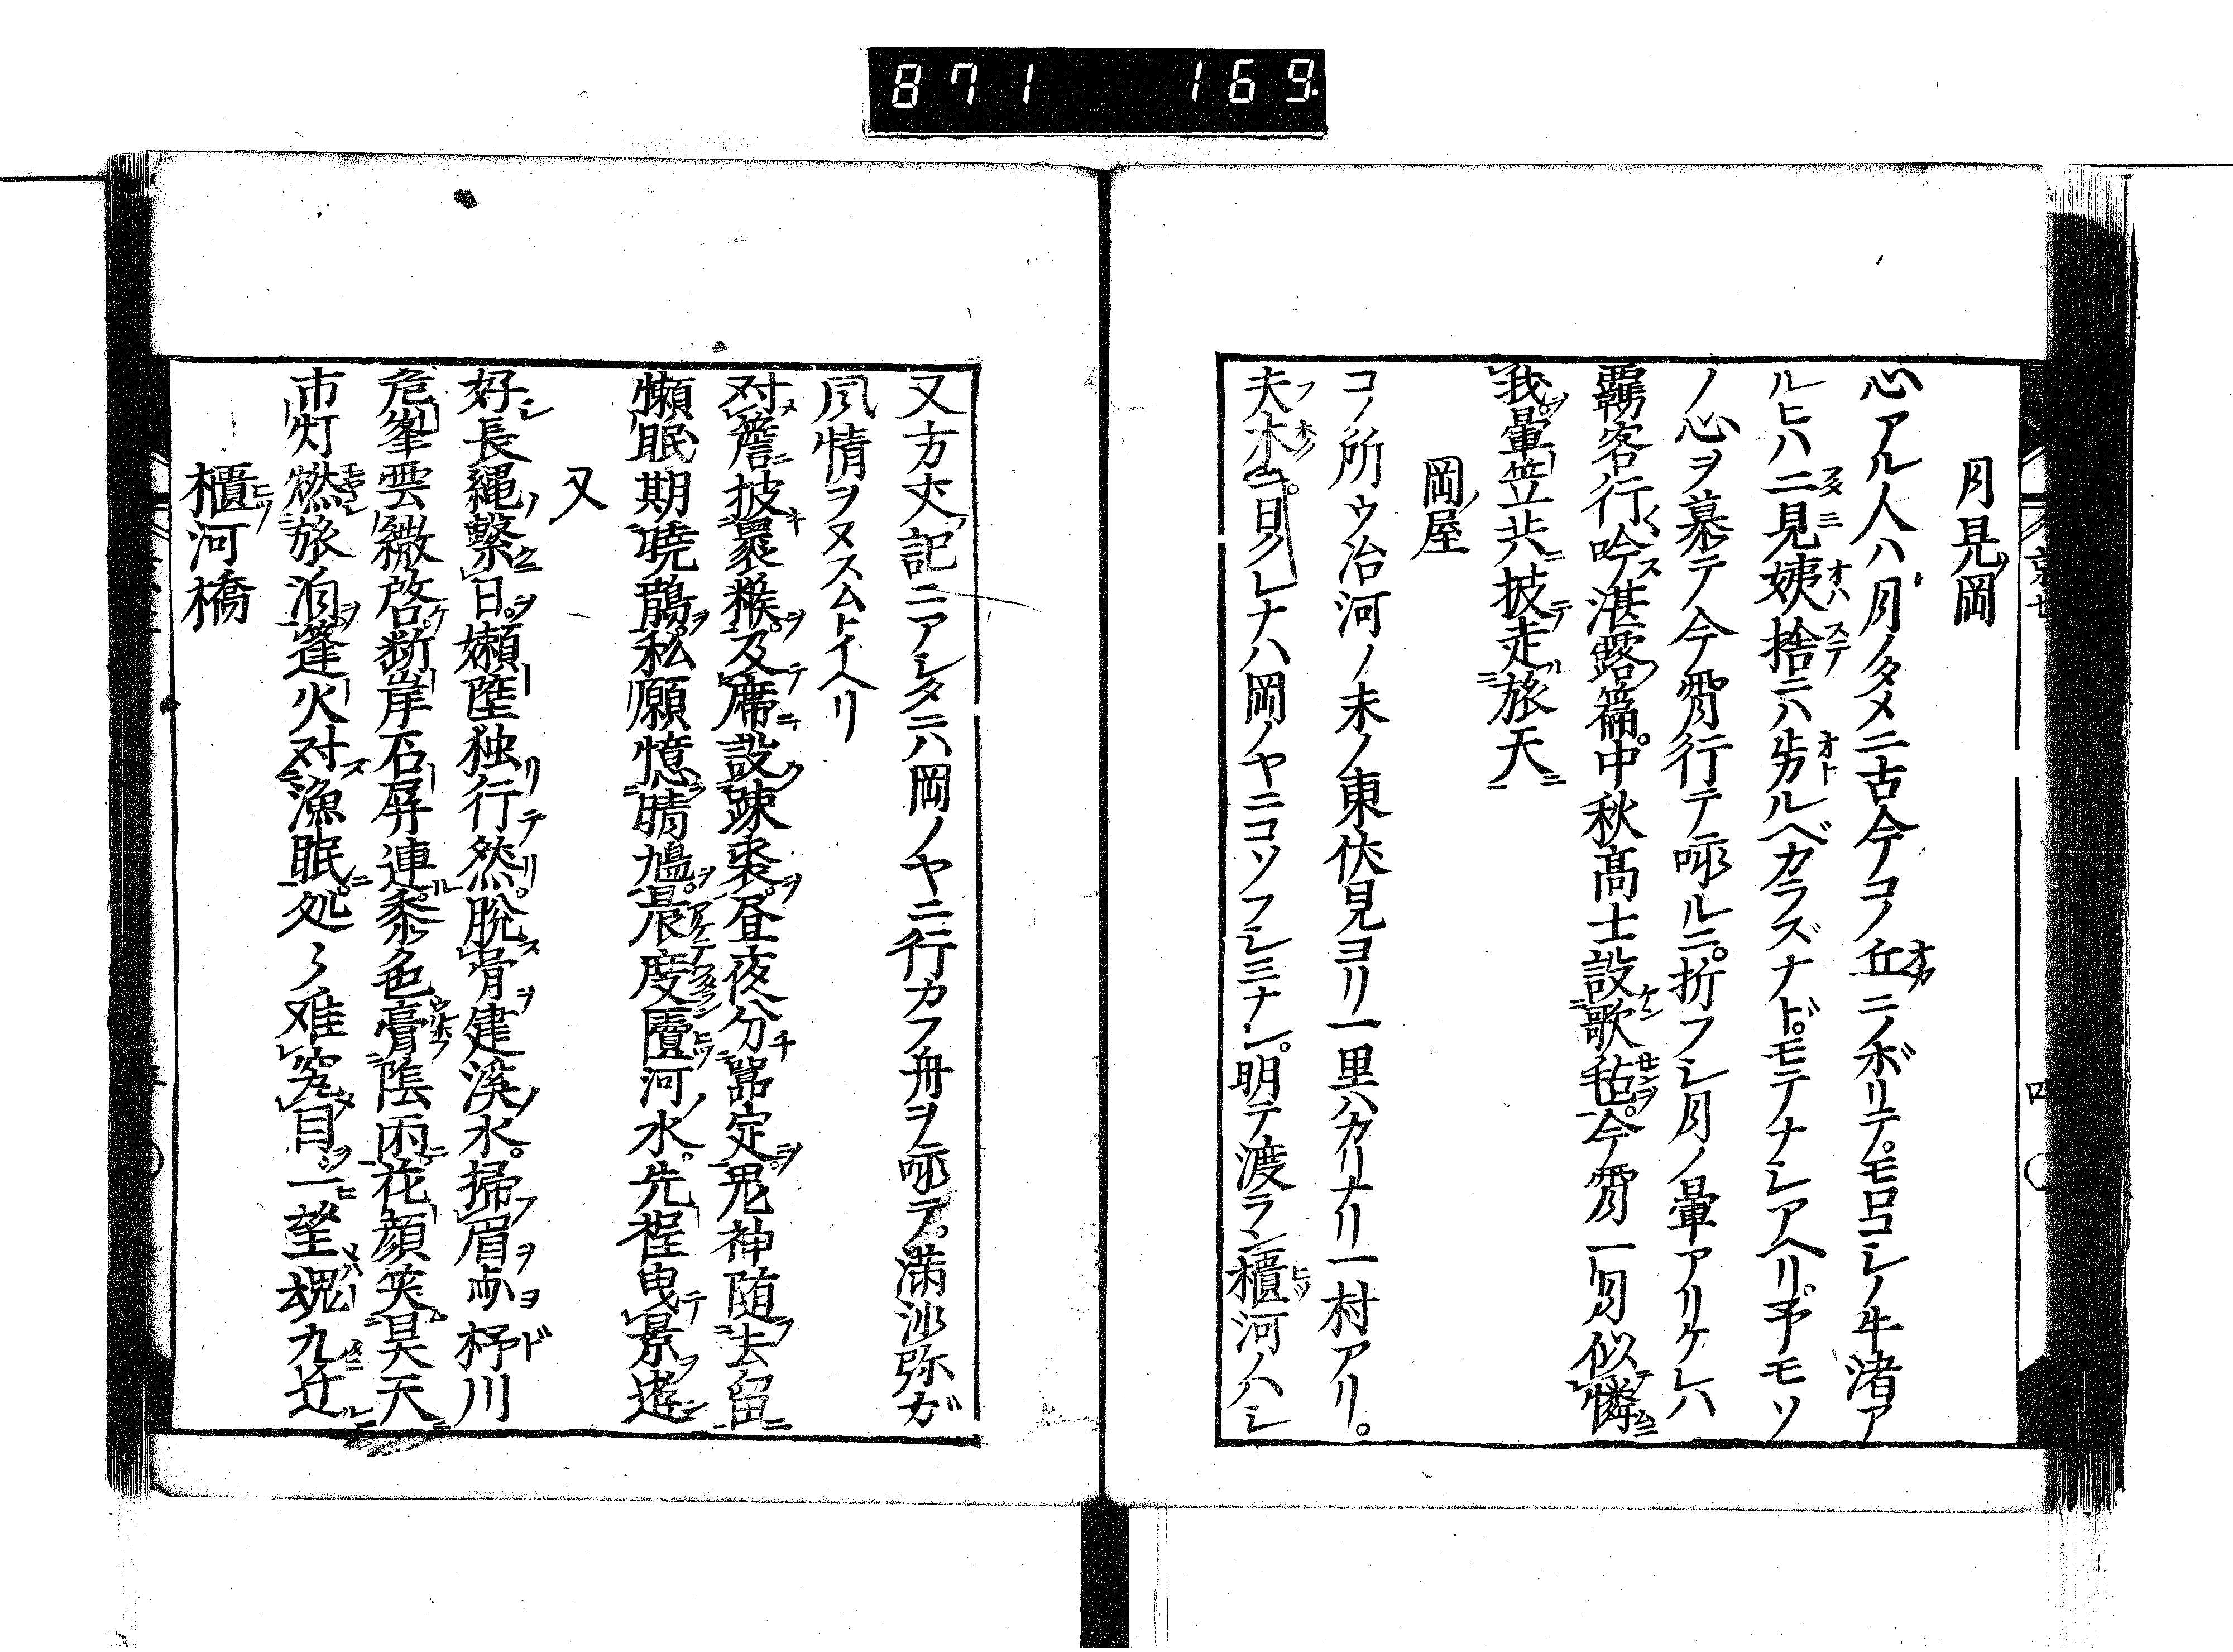 871 169.
月見岡
心アル人ハ月ノタメニ古今コノ丘ニノボリテ。モロコシノ牛渚ア
ルヒハ二見姨捨ニハ劣ルベカラズナド。モテナシアヘリ。予モソ
ノ心ヲ慕テ今宵行テ咏ルニ。折フシ月ノ暈アリケレハ
羈客行吟湛露篇。中秋高士設歌筵。今宵一月似憐
我。暈笠共披走旅天
岡屋
コノ所ウ治河ノ末ノ東伏見ヨリ一里ハカリナリ一村アリ。
夫木 日クレナハ岡ノヤニコソフシミナン。明テ渡ラン櫃河ノハシ
又方丈記ニアシタニハ岡ノヤニ行カフ舟ヲ咏テ。満沙弥ガ
風情ヲヌスムトイヘリ
対簷披褁糇及席設疎棗。昼夜分昴定。鬼神随去留
懶眠期暁鵲。私願憶晴鳩。晨度匱河水。先程曳景遊
又
好長縄繋日。嬾陸独行然。脱骨建溪水。掃眉両杼川
危峯雲繖啓。断岸石屏連。黍色膏陰雨。花顔笑昊天
市灯燃旅泊。篷火対漁眠。処〻难窮目。一望媿九迁
櫃河橋
京廿 四